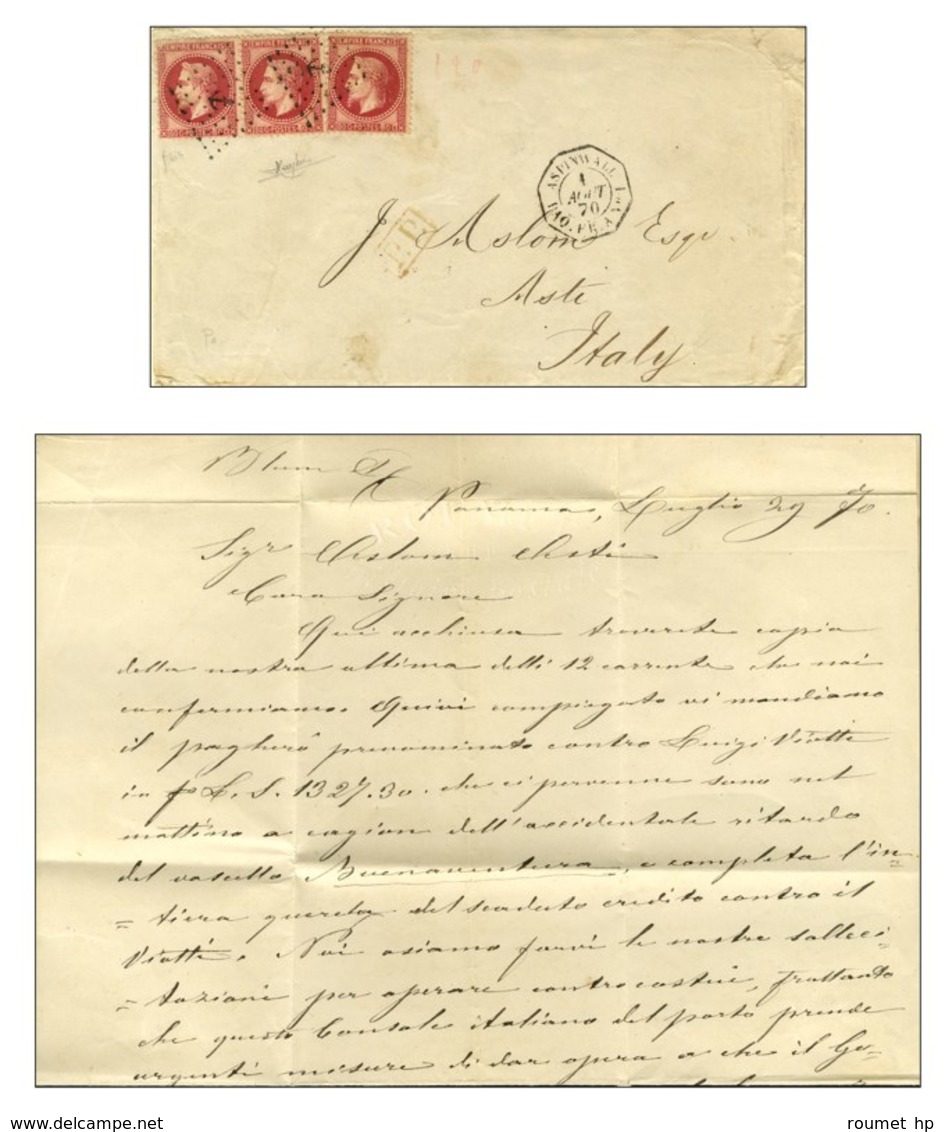 EMPIRE FRANÇAIS EMPIRE FRANÇAIS EMPIRE FRANÇAIS
80 C POSTES 80 C 80 C POSTES 80 C 80 C POSTES 80 C
ASPINWALL
1
AOUT
70
PAQ. FR. A
P.P.
J Aslom Esqr.
Asti
Italy.
Panama, Luglio 29 70.
Sigr Aslom Asti
Caro Signore
Qui acchiusa troverete copia
della nostra ultima delli 12 corrente che noi
confermiamo. Quivi compiegato vi mandiamo
il pagherò prenominato contro Luigi Viotti
in L. S. 1327.30. che ci pervenne sono nel
mattino a cagion dell'accidentale ritardo
del vascello Buenaventura, e completa l'in=
=tiera querela del scaduto credito contro il
Viotti. Noi osiamo farvi le nostre solleci=
=tazioni per operare contro costui, frattanto
che questo Console italiano del porto prende
urgenti misure di dar opera a che il Go=
roumet hp